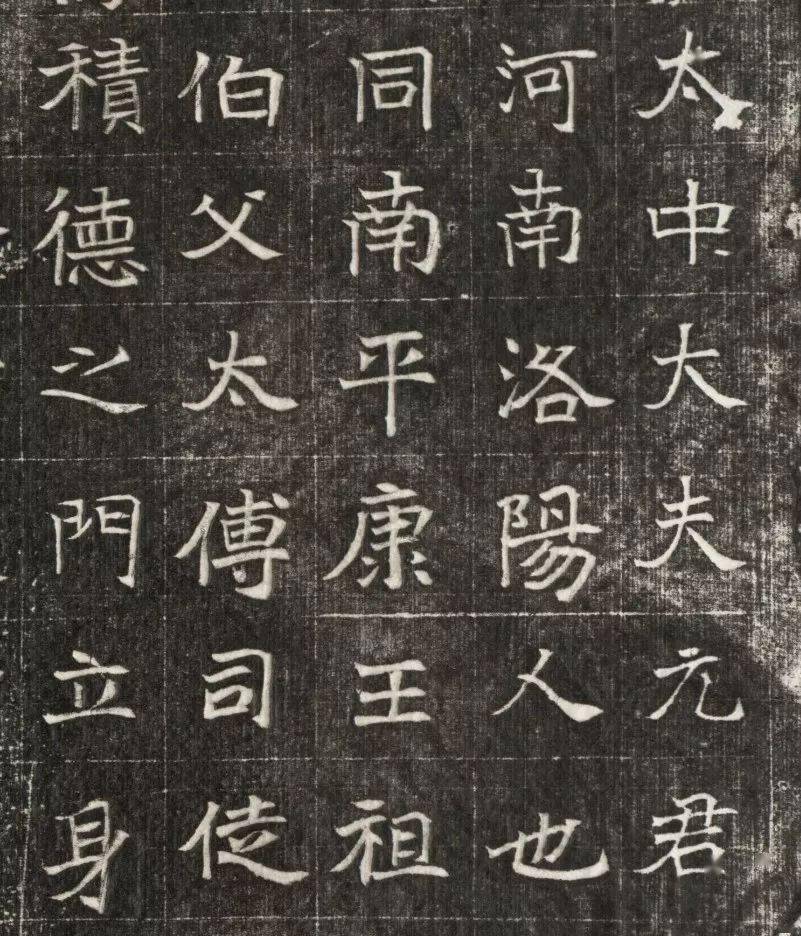 太中大夫元君
河南洛陽人也
同南平康王祖
伯父太傅司徒
積德之門立身